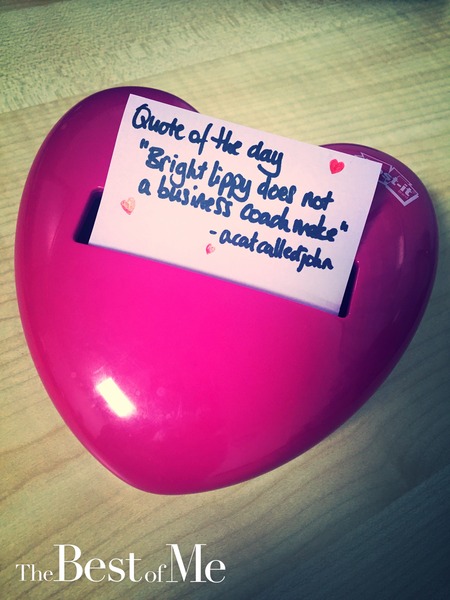 Quote of the day
"Bright lippy does not
a business coach make"
- acatcalledjohn
Post-it
The Best of Me